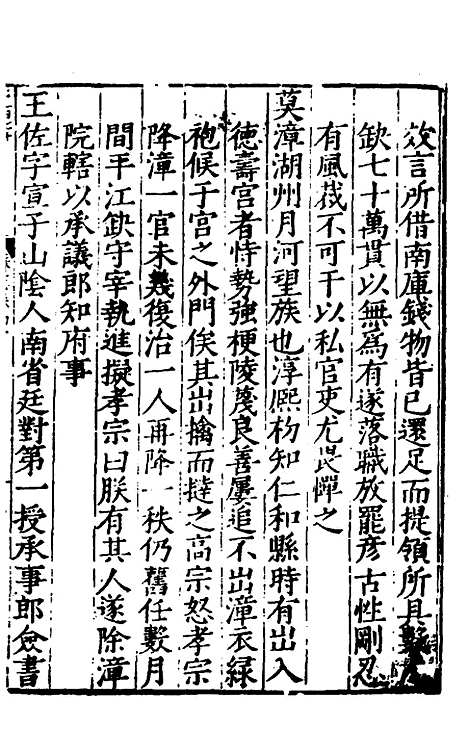 效言所借南庫錢物皆已還足而提領所具數
缺七十萬貫以無為有遂落職放罷彥古性剛忍
有風烖不可干以私官吏尤畏憚之
莫漳湖州月河望族也淳熙初知仁和縣時有出入
德壽宮者恃勢強梗陵蔑良善屢追不出漳衣緑
袍候于宮之外門俟其出擒而撻之高宗怒孝宗
降漳一官未幾復治一人再降一秩仍舊任數月
間平江缺守宰執進擬孝宗曰朕有其人遂除漳
院轄以承議郎知府事
王佐字宣子山陰人南省廷對第一授承事郎僉書